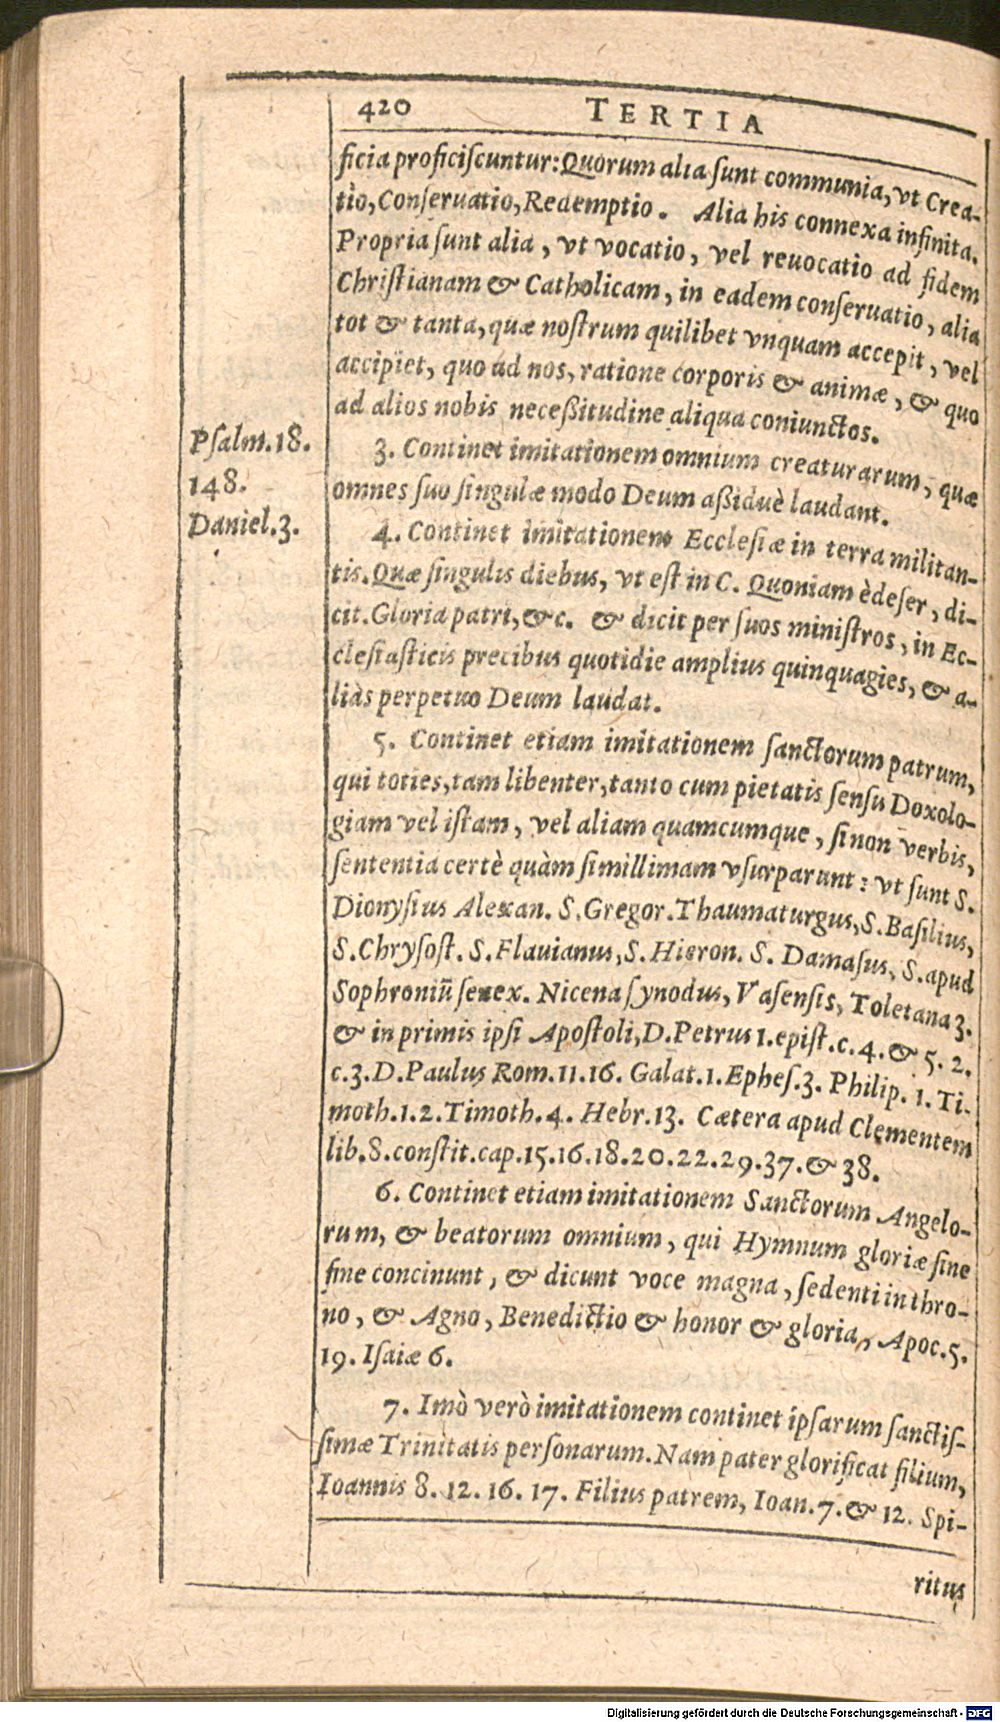 420 TERTIA
ficia proficiſcuntur: Quorum alia ſunt communia, vt Crea-
tio, Conſeruatio, Redemptio. Alia his connexa infinita.
Propria ſunt alia, vt vocatio, vel reuocatio ad fidem
Chriſtianam & Catholicam, in eadem conſeruatio, alia
tot & tanta, quæ noſtrum quilibet vnquam accepit, vel
accipiet, quo ad nos, ratione corporis & animæ, & quo
ad alios nobis neceßitudine aliqua coniunctos.
Pſalm. 18.
148.
Daniel. 3.
3. Continet imitationem omnium creaturarum, quæ
omnes ſuo ſingulæ modo Deum aßiduè laudant.
4. Continet imitationem Eccleſiæ in terra militan-
tis. Quæ ſingulis diebus, vt eſt in C. Quoniam èdeſer, di-
cit. Gloria patri, &c. & dicit per ſuos miniſtros, in Ec-
cleſiaſticis precibus quotidie amplius quinquagies, & a-
liàs perpetuo Deum laudat.
5. Continet etiam imitationem ſanctorum patrum,
qui toties, tam libenter, tanto cum pietatis ſenſu Doxolo-
giam vel iſtam, vel aliam quamcumque, ſi non verbis,
ſententia certè quàm ſimillimam vſurparunt: vt ſunt S.
Dionyſius Alexan. S. Gregor. Thaumaturgus, S. Baſilius,
S. Chryſoſt. S. Flauianus, S. Hieron. S. Damaſus, S. apud
Sophroniū ſenex. Nicena ſynodus, Vaſenſis, Toletana 3.
& in primis ipſi Apoſtoli, D. Petrus 1. epiſt. c. 4. & 5. 2.
c. 3. D. Paulus Rom. 11. 16. Galat. 1. Epheſ. 3. Philip. 1. Ti-
moth. 1. 2. Timoth. 4. Hebr. 13. Cætera apud Clementem
lib. 8. conſtit. cap. 15. 16. 18. 20. 22. 29. 37. & 38.
6. Continet etiam imitationem Sanctorum Angelo-
rum, & beatorum omnium, qui Hymnum gloriæ ſine
fine concinunt, & dicunt voce magna, ſedenti in thro-
no, & Agno, Benedictio & honor & gloria, Apoc. 5.
19. Iſaiæ 6.
7. Imò verò imitationem continet ipſarum ſanctiſ-
ſimæ Trinitatis perſonarum. Nam pater glorificat filium,
Ioannis 8. 12. 16. 17. Filius patrem, Ioan. 7. & 12. Spi-
ritus
Digitalisierung gefördert durch die Deutsche Forschungsgemeinschaft - DFG